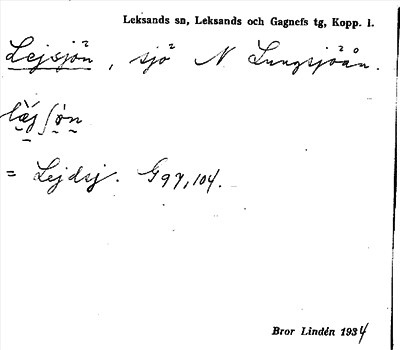 Leksands sn, Leksands och Gagnefs tg, Kopp. l.
Lejsjön, sjö N Lungsjöån.
= Lejdsj. G97,104.
Bror Lindén 1934